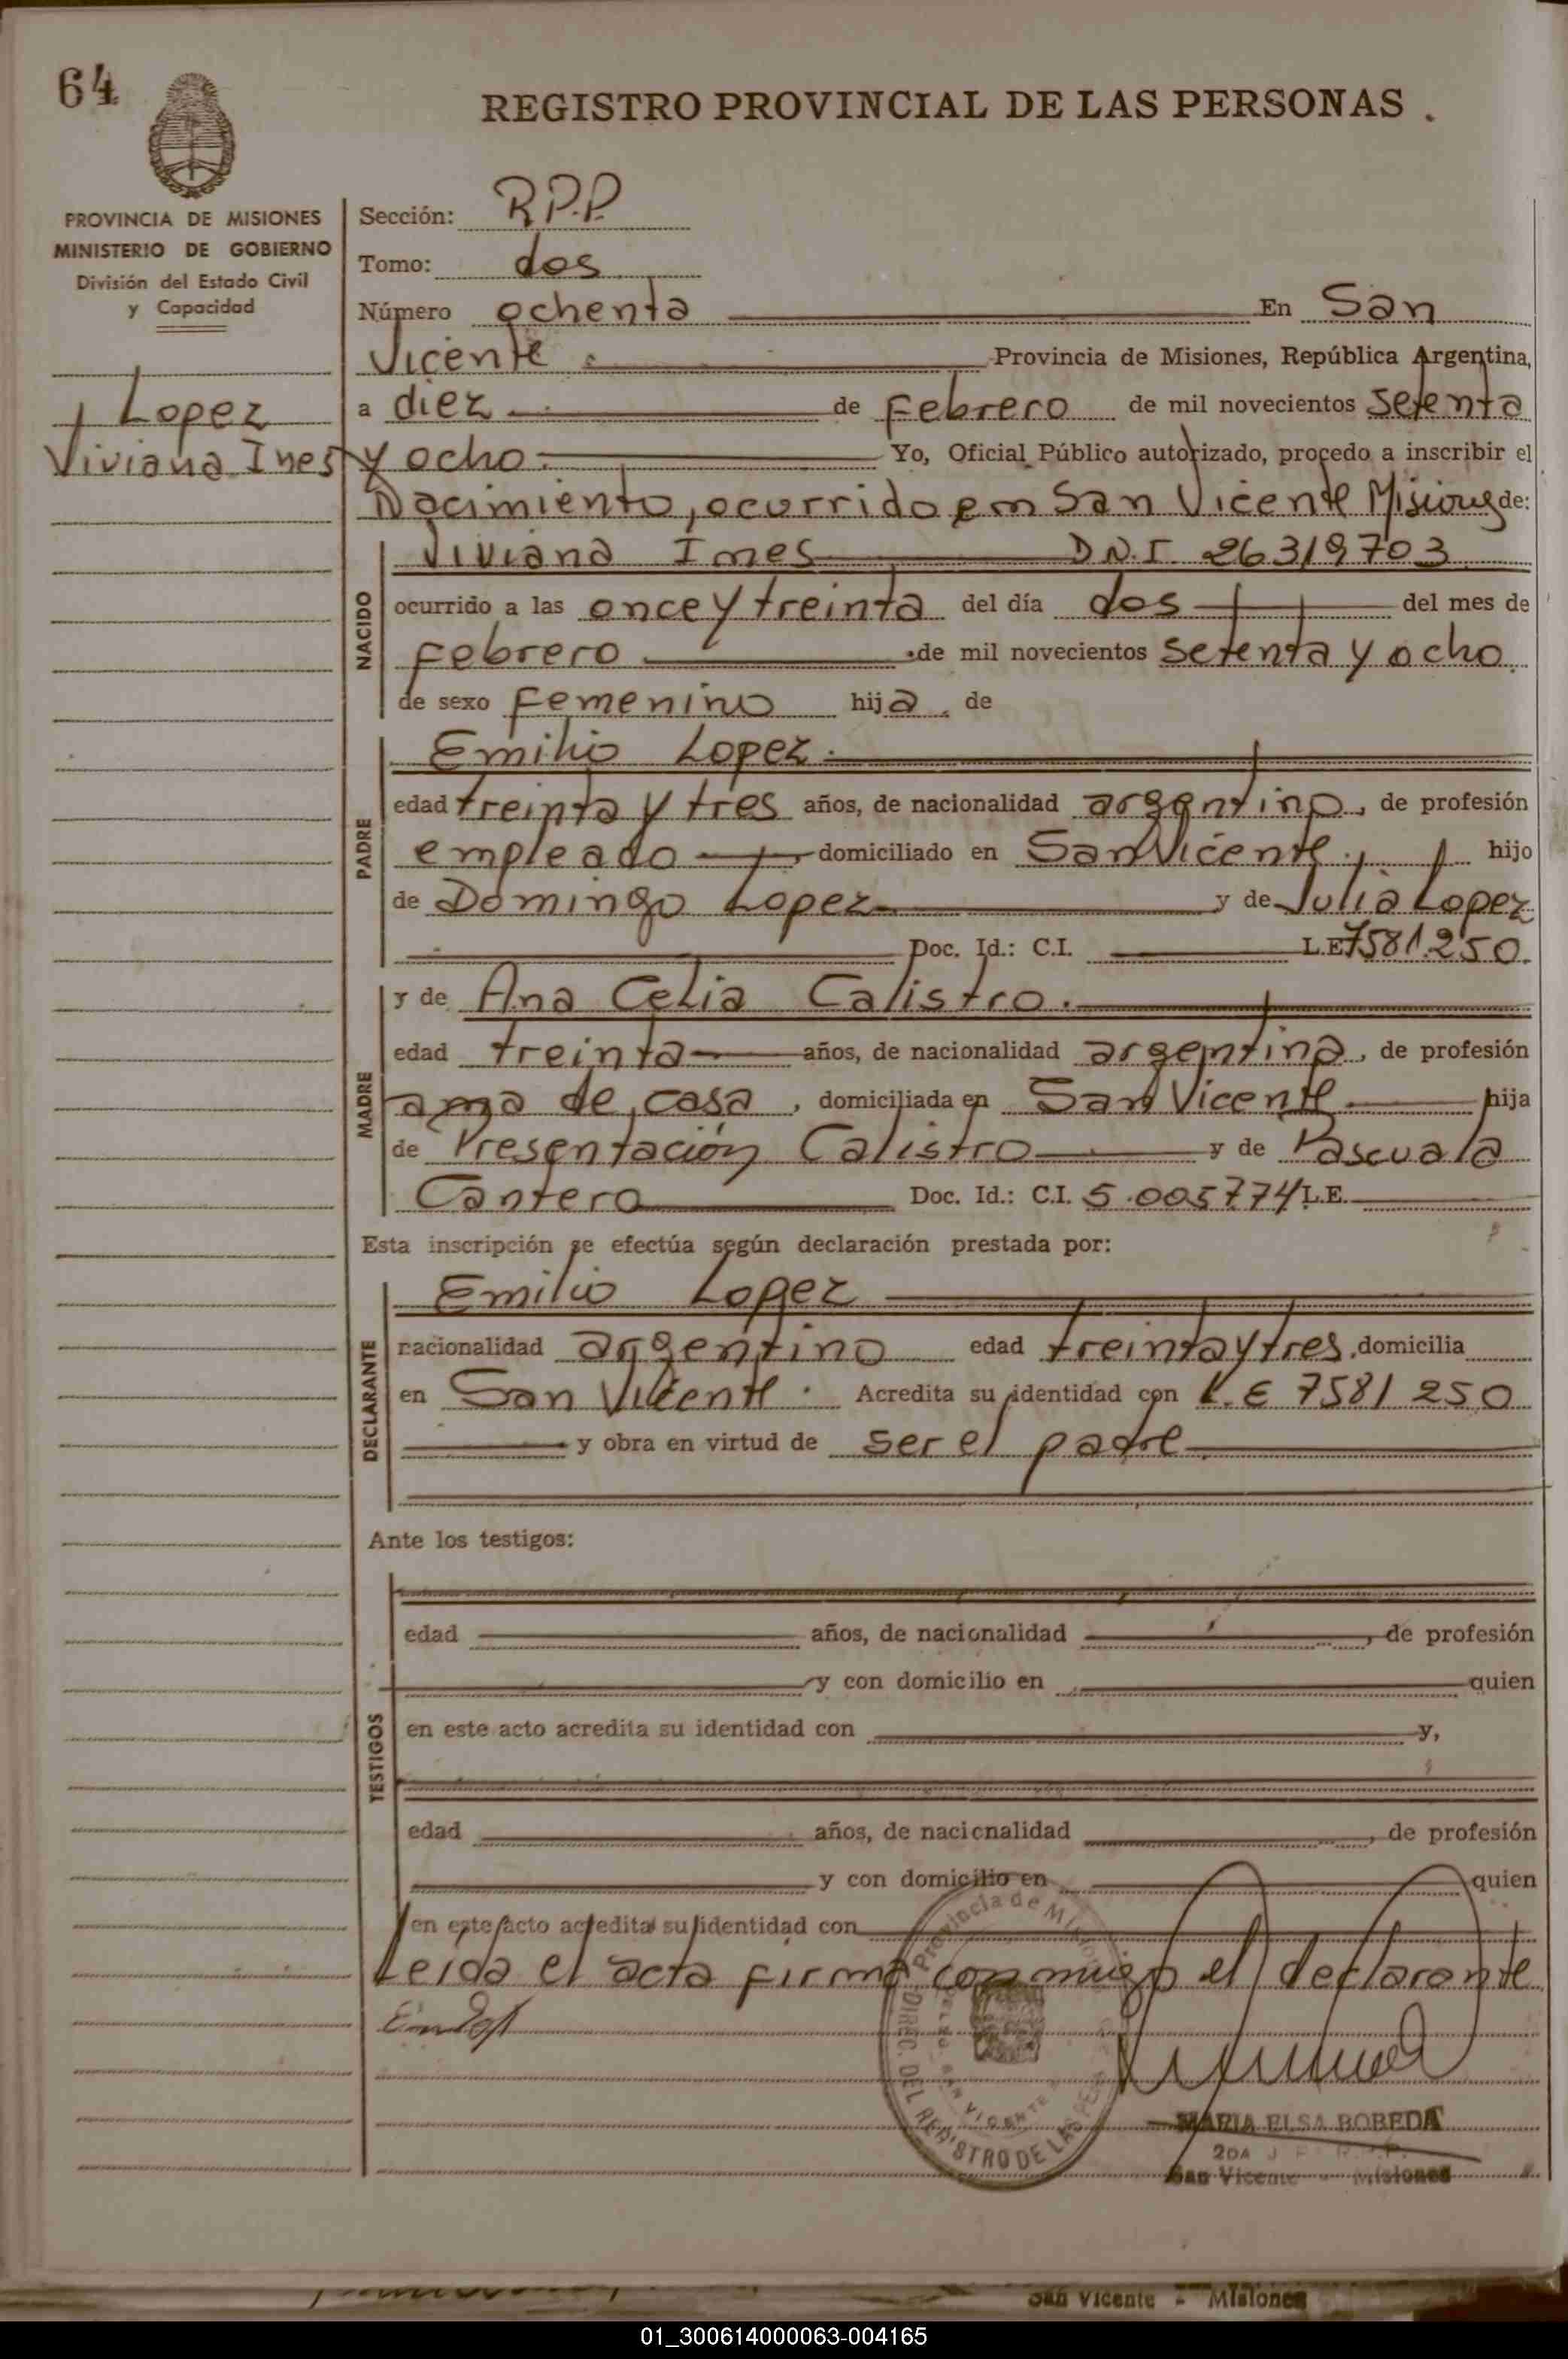 64
REGISTRO PROVINCIAL DE LAS PERSONAS .
PROVINCIA DE MISIONES
MINISTERIO DE GOBIERNO
División del Estado Civil
y Capacidad
Lopez
Viviana Ines
Sección: R.P.P.
Tomo: dos
Número ochenta En San
Vicente . Provincia de Misiones, República Argentina,
a diez . de Febrero de mil novecientos setenta
y ocho . Yo, Oficial Público autorizado, procedo a inscribir el
Nacimiento, ocurrido en San Vicente Misiones de:
NACIDO
Viviana Ines D.N.I. 26319703
ocurrido a las once y treinta del día dos del mes de
Febrero de mil novecientos setenta y ocho
de sexo Femenino hija de
PADRE
Emilio Lopez .
edad treinta y tres años, de nacionalidad argentino, de profesión
empleado domiciliado en San Vicente . hijo
de Domingo Lopez y de Julia Lopez
Doc. Id.: C.I. L.E 7581.250.
MADRE
y de Ana Celia Calistro .
edad treinta años, de nacionalidad argentina, de profesión
ama de casa , domiciliada en San Vicente hija
de Presentación Calistro y de Pascuala
Cantero Doc. Id.: C.I. 5.005774 L.E.
Esta inscripción se efectúa según declaración prestada por:
DECLARANTE
Emilio Lopez
nacionalidad argentino edad treinta y tres, domicilia
en San Vicente . Acredita su identidad con L.E 7581250
y obra en virtud de ser el padre
Ante los testigos:
TESTIGOS
edad años, de nacionalidad , de profesión
y con domicilio en quien
en este acto acredita su identidad con y,
edad años, de nacionalidad , de profesión
y con domicilio en quien
en este acto acredita su identidad con
Leida el acta firma conmigo el declarante
Provincia de Misiones
DIREC. DEL REGISTRO DE LAS PERS
SAN VICENTE
MARIA ELSA BOBEDA
San Vicente - Misiones
San Vicente - Misiones
01_300614000063-004165